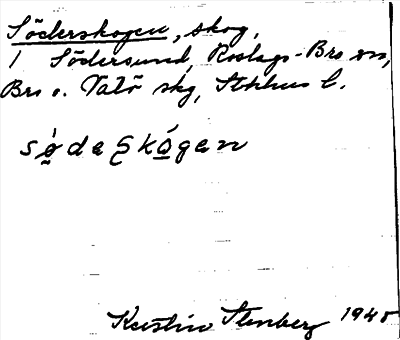 Söderskogen, skog,
1 Södersund, Roslags-Bro sn,
Bro o. Vätö skg, Sthlms l.
sø̀dascskógan
Kerstin Stenberg 1940